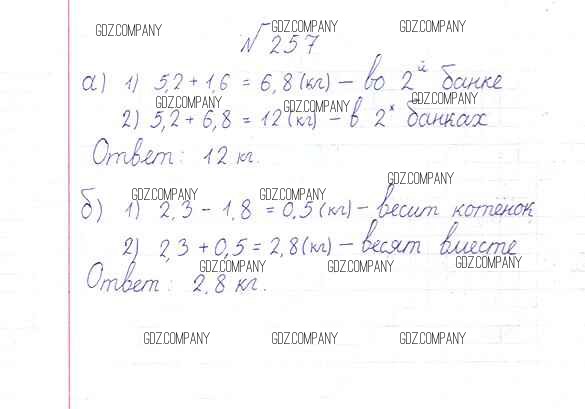 GDZ.COMPANY GDZ.COMPANY GDZ.COMPANY
№ 257
а) 1) 5,2 + 1,6 = 6,8 (кг) – во 2й банке
GDZ.COMPANY GDZ.COMPANY GDZ.COMPANY
2) 5,2 + 6,8 = 12 (кг) – в 2х банках
Ответ: 12 кг.
GDZ.COMPANY
GDZ.COMPANY GDZ.COMPANY
б) 1) 2,3 – 1,8 = 0,5 (кг) – весит котёнок
2) 2,3 + 0,5 = 2,8 (кг) – весят вместе
GDZ.COMPANY GDZ.COMPANY GDZ.COMPANY
Ответ: 2,8 кг.
GDZ.COMPANY GDZ.COMPANY GDZ.COMPANY